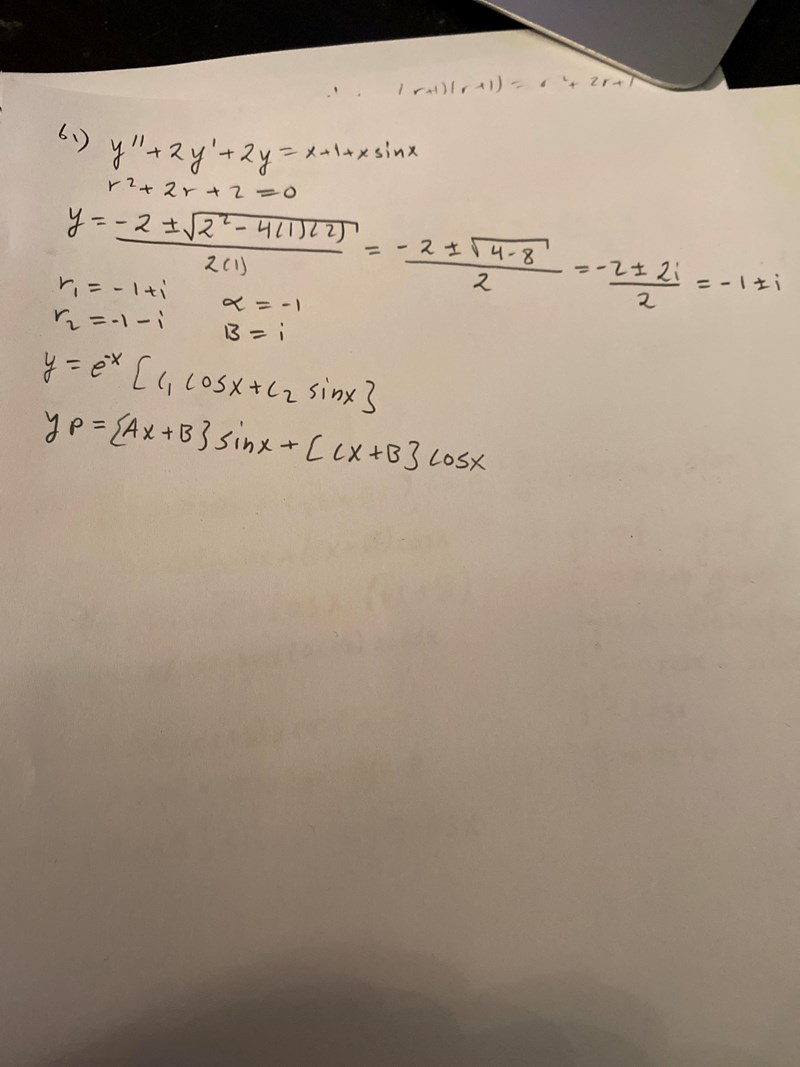 ∴ (r+1)(r+1) = r²+2r+1
6.) y''+2y'+2y = x+1+x sinx
r²+2r+2=0
y = -2 ± √(2²-4(1)(2)) / 2(1) = -2 ± √(4-8) / 2 = -2 ± 2i / 2 = -1 ± i
r₁ = -1+i α = -1
r₂ = -1-i B = i
y = e^-x [c₁ cosx + c₂ sinx}
yp = {Ax+B} sinx + [Cx+B} cosx